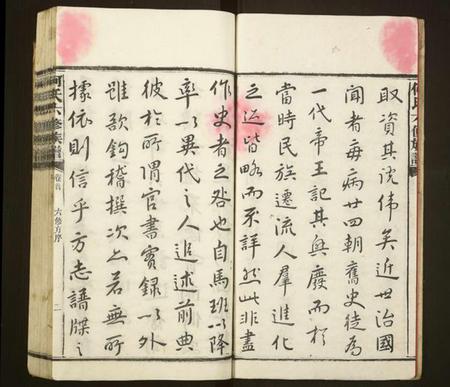 何氏六修族譜
取資其沈偉矣近世治國
聞者每病廿四朝舊史徒為
一代帝王記其興廢而於
當時民族遷流人羣進化
之迹皆略而不詳然此非盡
作史者之咎也自馬班以降
率以異代之人追述前典
彼於所謂官書實錄以外
雖欲鉤稽撰次亦若無所
據依則信乎方志譜牒之
何氏六修族譜
卷首
六修方序
二